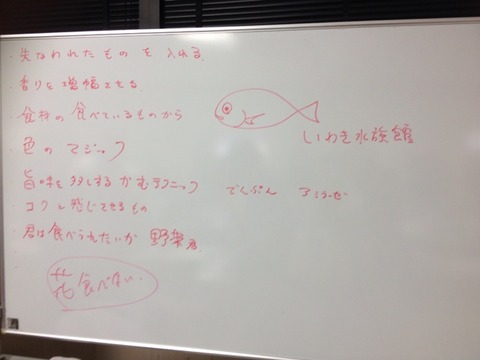 ・失なわれたものを入れる
・香りを増幅させる
・食材の食べているものから
色のマジック
旨味を多しするかむテクニック でんぷん アミラーゼ
コクと感じさせるもの
君は食べられたいか 野菜君
花食べない
いわき水族館